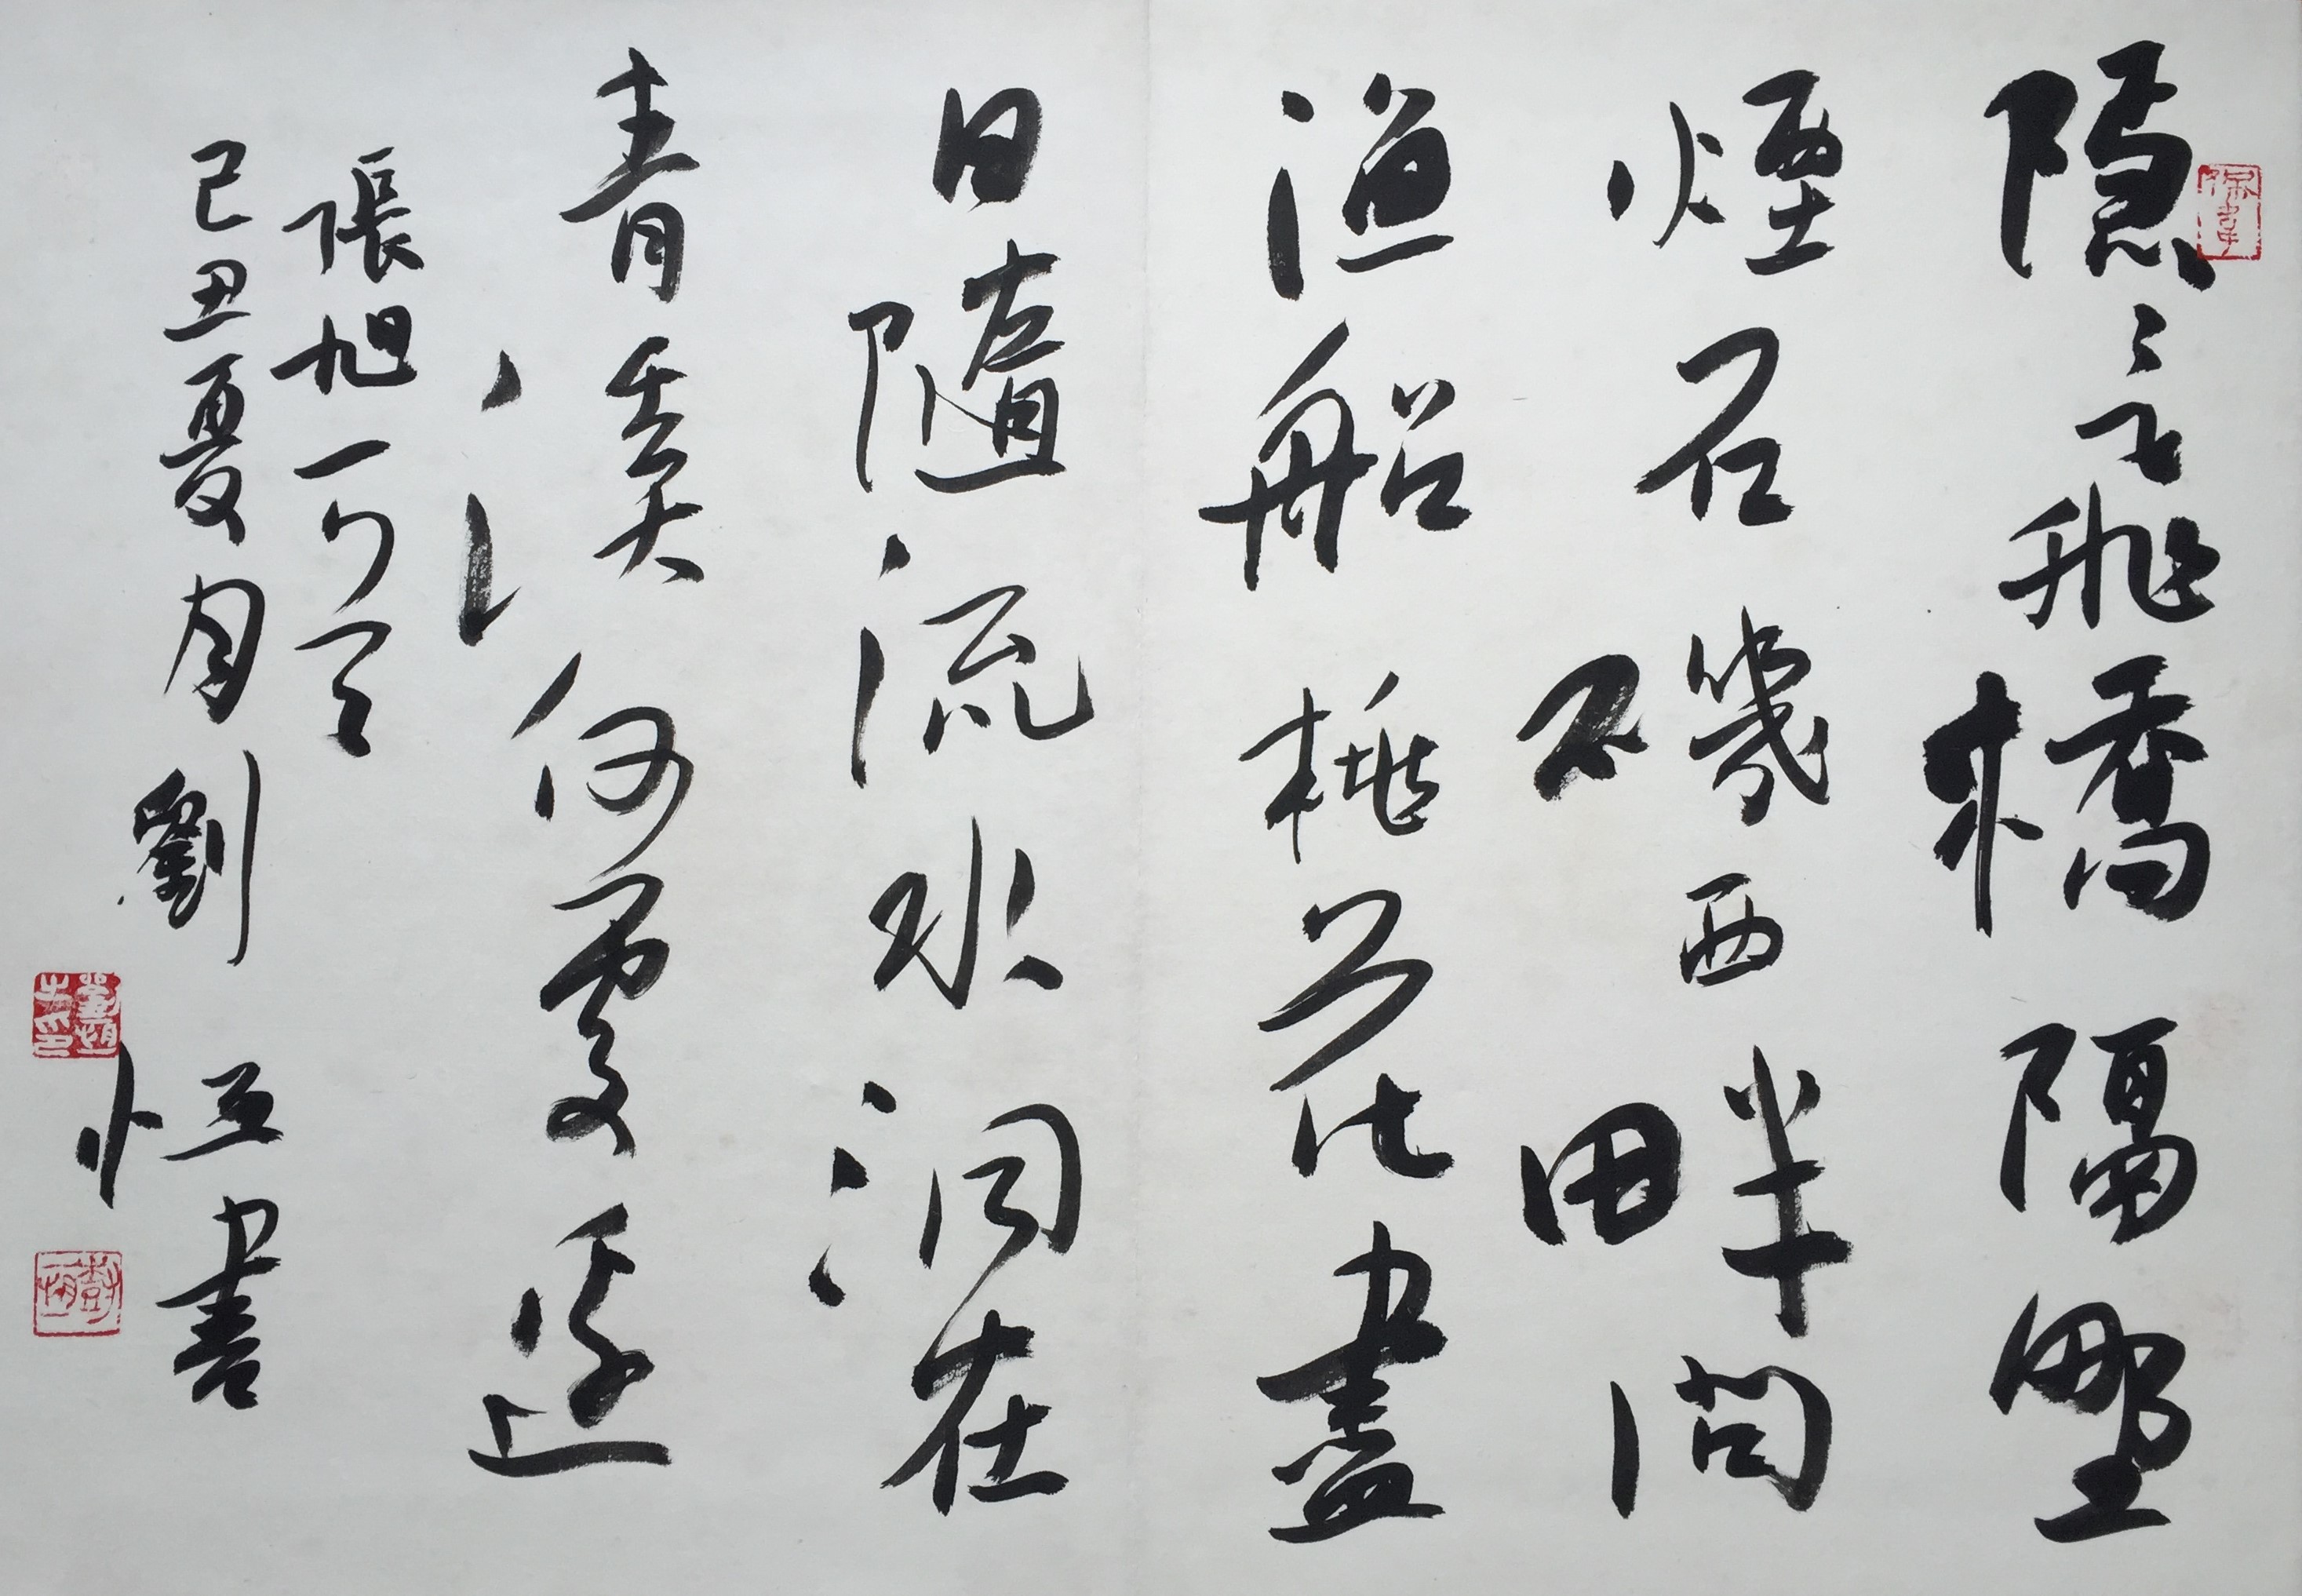 隱〻飛橋隔野
煙石磯西畔問
漁船桃花盡
日隨流水洞在
青溪何處邊
張旭
己丑夏月劉恒書